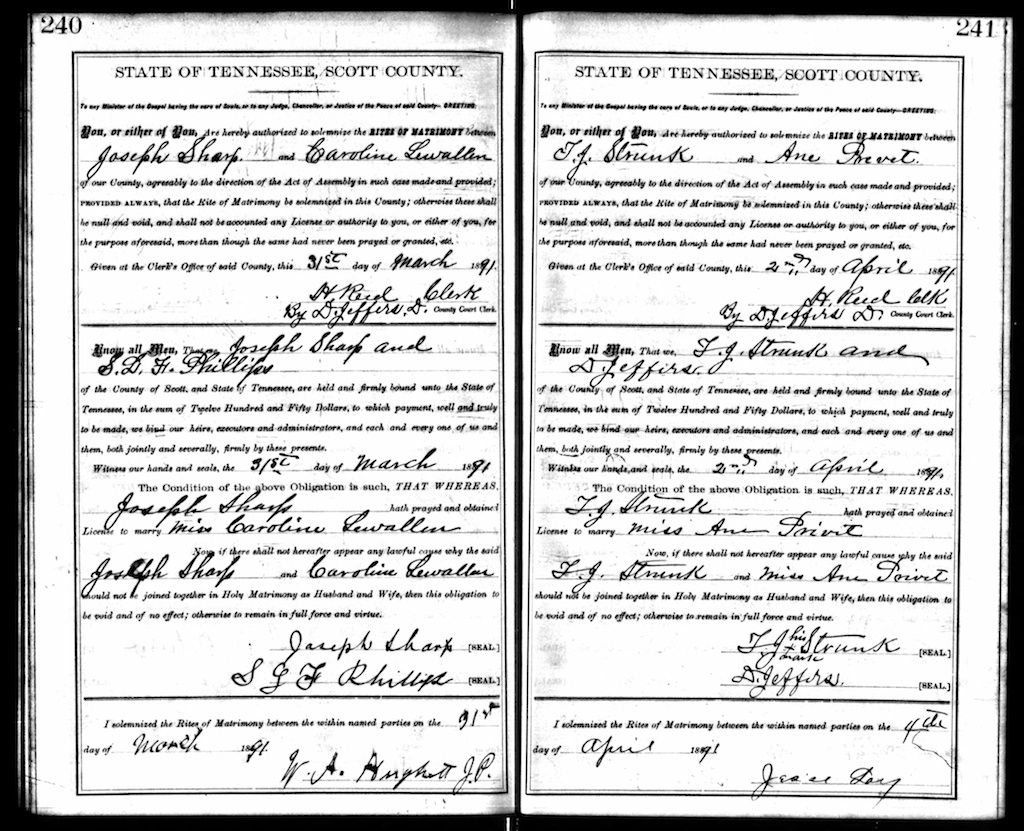 240
STATE OF TENNESSEE, SCOTT COUNTY.
To any Minister of the Gospel having the care of Souls, or to any Judge, Chancellor, or Justice of the Peace of said County—GREETING:
You, or either of You, Are hereby authorized to solemnize the RITES OF MATRIMONY between
Joseph Sharp. and Caroline Lewallen
of our County, agreeably to the direction of the Act of Assembly in such case made and provided;
PROVIDED ALWAYS, that the Rite of Matrimony be solemnized in this County; otherwise these shall
be null and void, and shall not be accounted any License or authority to you, or either of you, for
the purpose aforesaid, more than though the same had never been prayed or granted, etc.
Given at the Clerk's Office of said County, this 31st day of March 1891.
H. Reed Clerk
By D. Jeffers. D. County Court Clerk.
Know all Men, That we, Joseph Sharp and
S. L. F. Phillips
of the County of Scott, and State of Tennessee, are held and firmly bound unto the State of
Tennessee, in the sum of Twelve Hundred and Fifty Dollars, to which payment, well and truly
to be made, we bind our heirs, executors and administrators, and each and every one of us and
them, both jointly and severally, firmly by these presents.
Witness our hands and seals, the 31st day of March 1891
The Condition of the above Obligation is such, THAT WHEREAS,
Joseph Sharp hath prayed and obtained
License to marry Miss Caroline Lewallen
Now, if there shall not hereafter appear any lawful cause why the said
Joseph Sharp and Caroline Lewallen
should not be joined together in Holy Matrimony as Husband and Wife, then this obligation to
be void and of no effect; otherwise to remain in full force and virtue.
Joseph Sharp [SEAL.]
S F Phillips [SEAL.]
I solemnized the Rites of Matrimony between the within named parties on the 31st
day of March 1891.
W. A. Hughett J.P.
241
STATE OF TENNESSEE, SCOTT COUNTY.
To any Minister of the Gospel having the care of Souls, or to any Judge, Chancellor, or Justice of the Peace of said County—GREETING:
You, or either of You, Are hereby authorized to solemnize the RITES OF MATRIMONY between
T. J. Strunk and Ane Privet.
of our County, agreeably to the direction of the Act of Assembly in such case made and provided;
PROVIDED ALWAYS, that the Rite of Matrimony be solemnized in this County; otherwise these shall
be null and void, and shall not be accounted any License or authority to you, or either of you, for
the purpose aforesaid, more than though the same had never been prayed or granted, etc.
Given at the Clerk's Office of said County, this 2nd day of April 1891.
H. Reed Clk
By D. Jeffers D. County Court Clerk.
Know all Men, That we, T. J. Strunk and
D. Jeffers.
of the County of Scott, and State of Tennessee, are held and firmly bound unto the State of
Tennessee, in the sum of Twelve Hundred and Fifty Dollars, to which payment, well and truly
to be made, we bind our heirs, executors and administrators, and each and every one of us and
them, both jointly and severally, firmly by these presents.
Witness our hands and seals, the 2nd day of April 1891.
The Condition of the above Obligation is such, THAT WHEREAS,
T. J. Strunk hath prayed and obtained
License to marry Miss Ane Privit
Now, if there shall not hereafter appear any lawful cause why the said
T. J. Strunk and Miss Ane Privet
should not be joined together in Holy Matrimony as Husband and Wife, then this obligation to
be void and of no effect; otherwise to remain in full force and virtue.
T J his x mark Strunk [SEAL.]
D. Jeffers. [SEAL.]
I solemnized the Rites of Matrimony between the within named parties on the 4th
day of April 1891